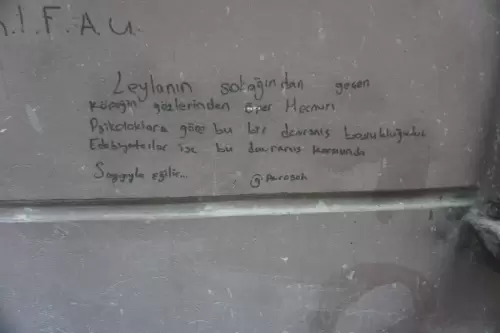 .I.F.A.U.
Leylanın sokağından geçen
köpeğin gözlerinden öper Mecnun
Psikologlara göre bu bir davranış bozukluğudur
Edebiyatcılar ise bu davranış karşısında
Saygıyla eğilir...